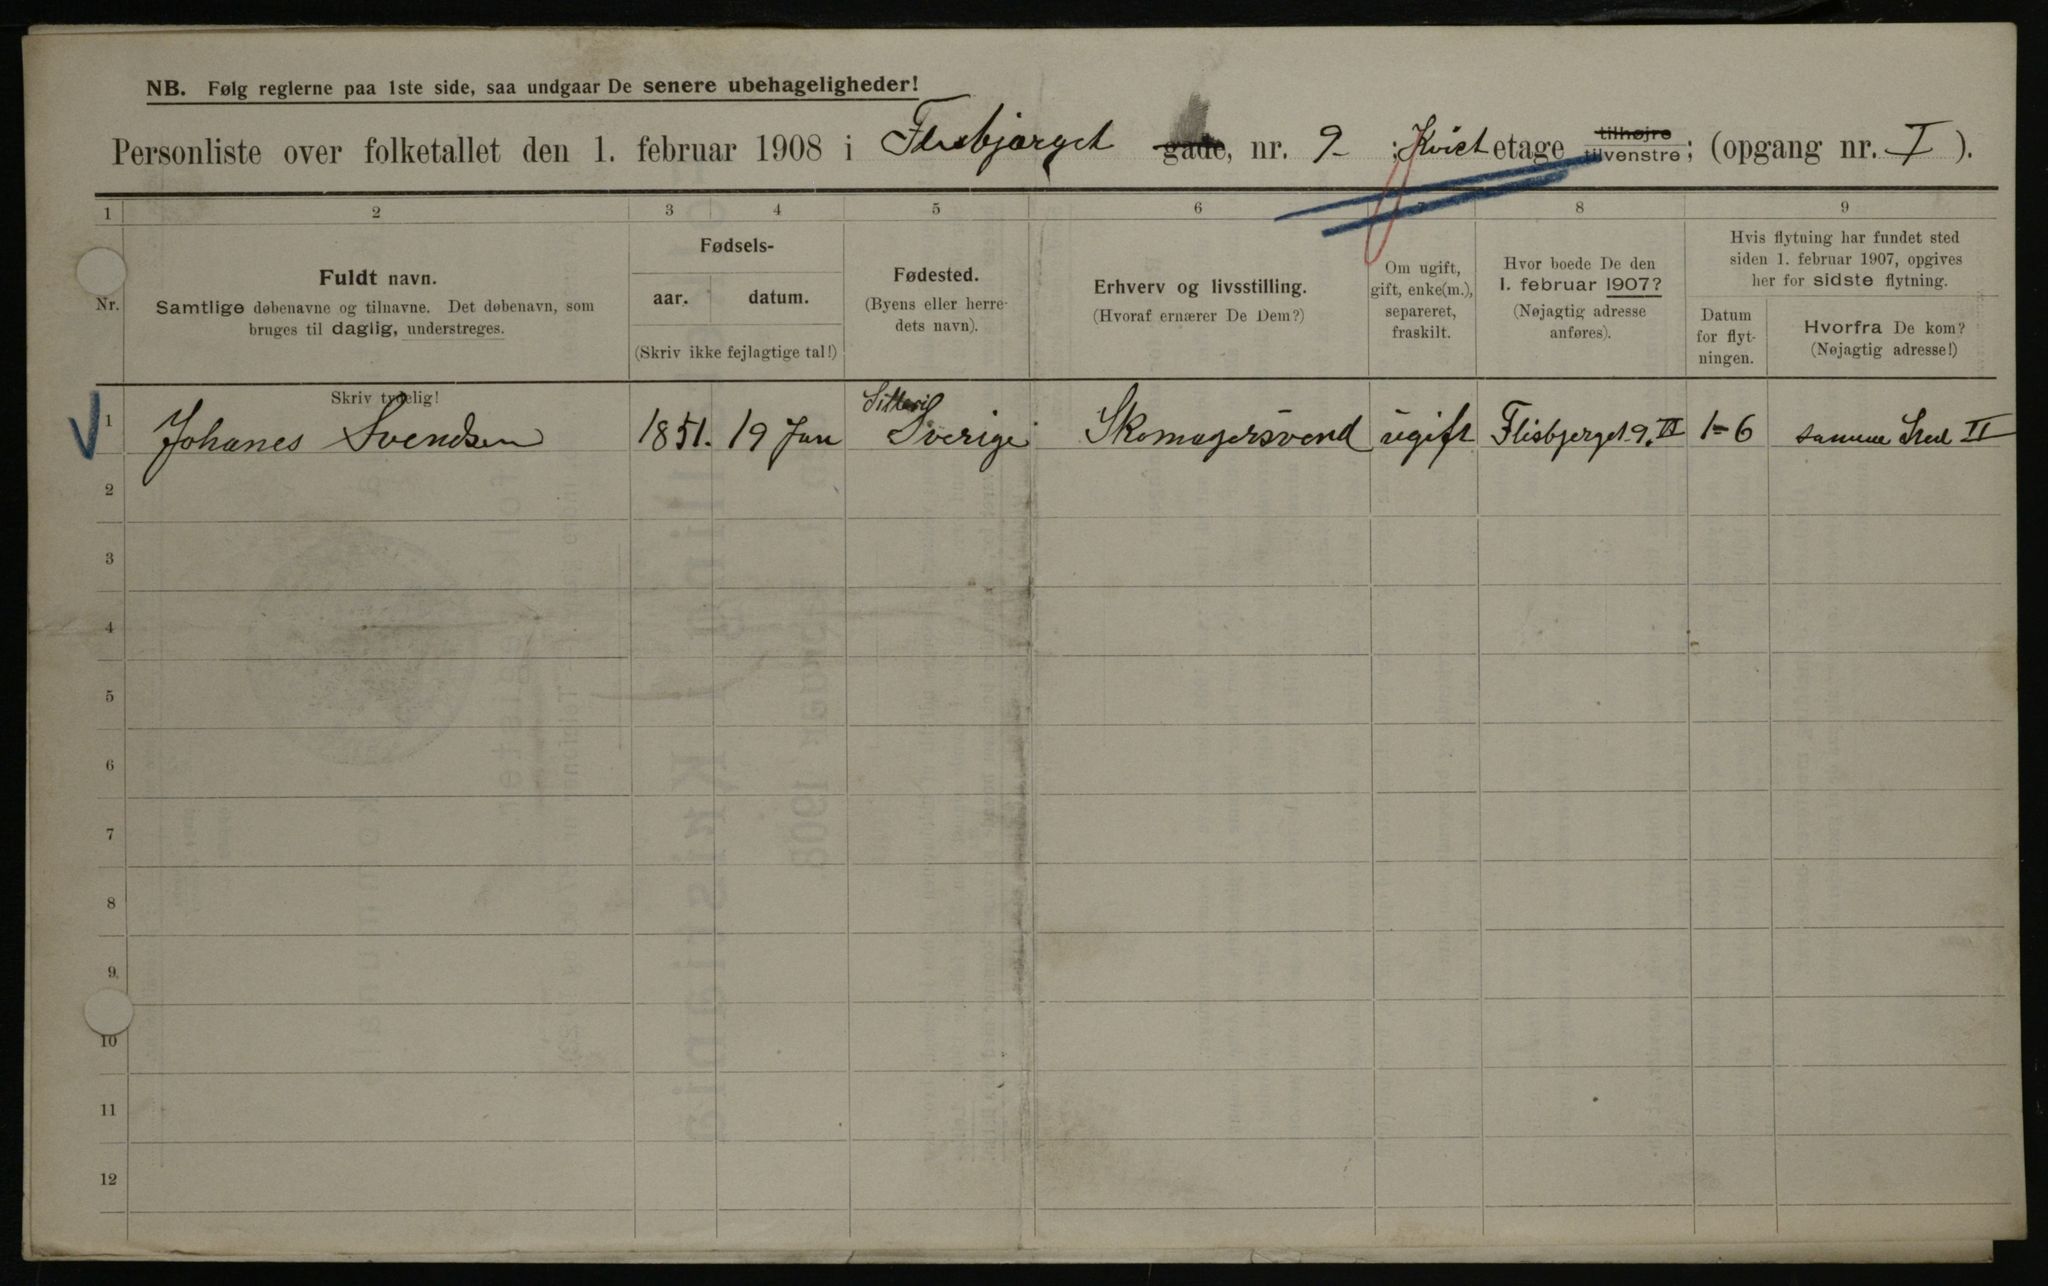 NB. Følg reglerne paa 1ste side, saa undgaar De senere ubehageligheder!
Personliste over folketallet den 1. februar 1908 i Flisbjerget gade, nr. 9 ; Kvist etage tilhøjre tilvenstre; (opgang nr. I ).
1 2 3 4 5 6 7 8 9
Nr.
Fuldt navn.
Samtlige døbenavne og tilnavne. Det døbenavn, som
bruges til daglig, understreges.
Fødsels-
aar. datum.
(Skriv ikke fejlagtige tal!)
Fødested.
(Byens eller herre-
dets navn).
Erhverv og livsstilling.
(Hvoraf ernærer De Dem?)
Om ugift,
gift, enke(m.),
separeret,
fraskilt.
Hvor boede De den
1. februar 1907?
(Nøjagtig adresse
anføres).
Hvis flytning har fundet sted
siden 1. februar 1907, opgives
her for sidste flytning.
Datum
for flyt-
ningen.
Hvorfra De kom?
(Nøjagtig adresse!)
Skriv tydelig!
1 Johanes Svendsen 1851. 19 Jan Sverige Skomagersvend ugift Flisbjerget 9. II 1-6 samme Sted II
2
3
4
5
6
7
8
9
10
11
12